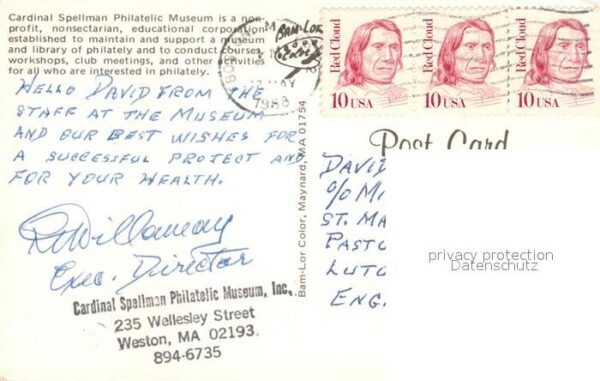 Cardinal Spellman Philatelic Museum is a non-
profit, nonsectarian, educational corporation
established to maintain and support a museum
and library of philately and to conduct courses,
workshops, club meetings, and other activities
for all who are interested in philately.
HELLO DAVID FROM THE
STAFF AT THE MUSEUM
AND OUR BEST WISHES FOR
A SUCCESSFUL PROTECT AND
FOR YOUR HEALTH.
Exec. Director
Cardinal Spellman Philatelic Museum, Inc.
235 Wellesley Street
Weston, MA 02193
894-6735
Bam-Lor Color, Maynard, MA 01754
BAM-LOR
MAY
1988
Red Cloud
10 USA
Red Cloud
10 USA
Red Cloud
10 USA
Post Card
DAVID
c/o M
ST. MA
PASTO
LUTO
ENG
privacy protection
Datenschutz